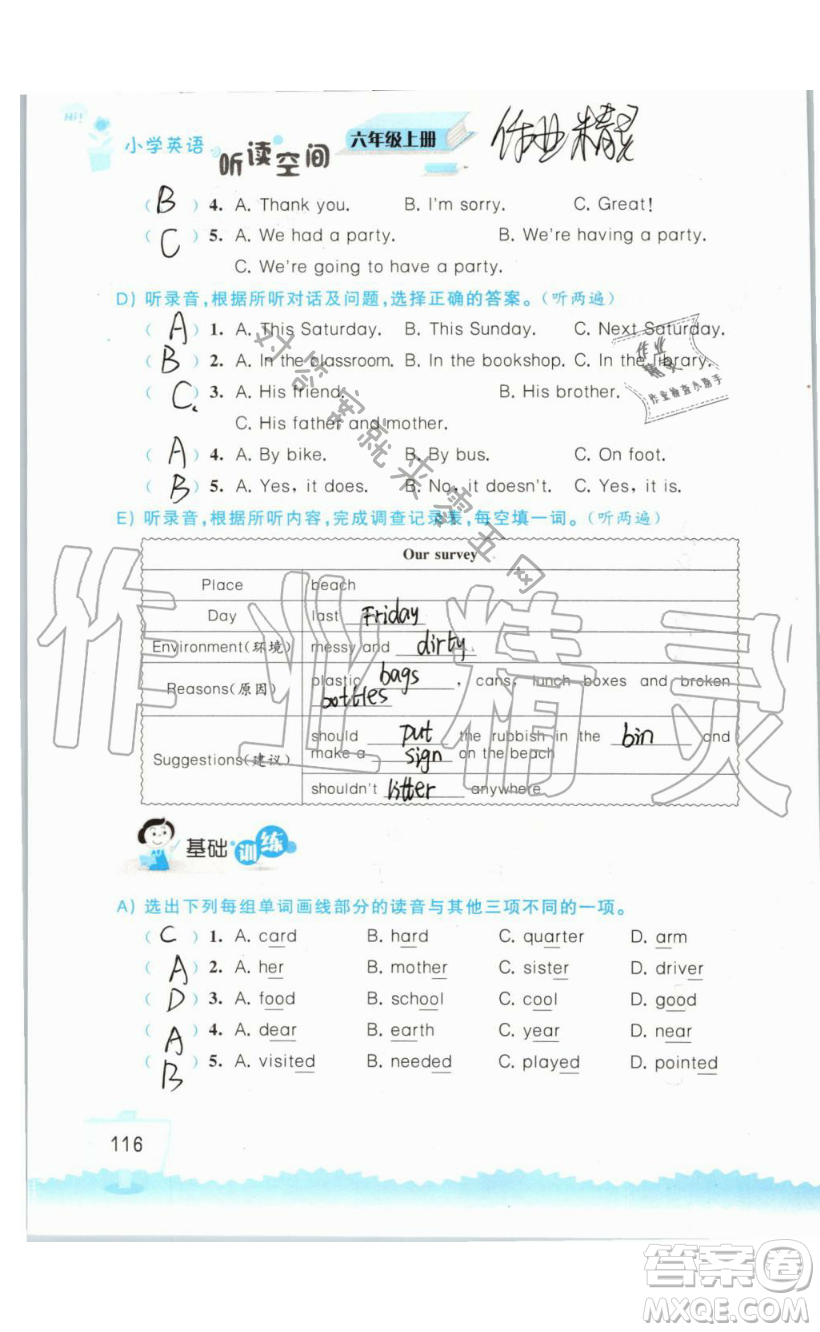 Hi!
小学英语 听读空间 六年级上册 作业精灵
( B ) 4. A. Thank you. B. I'm sorry. C. Great!
( C ) 5. A. We had a party. B. We're having a party.
C. We're going to have a party.
D) 听录音，根据所听对话及问题，选择正确的答案。（听两遍）
( A ) 1. A. This Saturday. B. This Sunday. C. Next Saturday.
( B ) 2. A. In the classroom. B. In the bookshop. C. In the library.
( C. ) 3. A. His friend. B. His brother.
C. His father and mother.
( A ) 4. A. By bike. B. By bus. C. On foot.
( B ) 5. A. Yes, it does. B. No, it doesn't. C. Yes, it is.
作业
精灵
作业检查小助手
对答案就来零五网
E) 听录音，根据所听内容，完成调查记录表，每空填一词。（听两遍）
Our survey
Place beach
Day last Friday
Environment(环境) messy and dirty
Reasons(原因) plastic bags, cans, lunch boxes and broken
bottles
Suggestions(建议) should put the rubbish in the bin and
make a sign on the beach
shouldn't litter anywhere
作业精灵
基础训练
A) 选出下列每组单词画线部分的读音与其他三项不同的一项。
( C ) 1. A. card B. hard C. quarter D. arm
( A ) 2. A. her B. mother C. sister D. driver
( D ) 3. A. food B. school C. cool D. good
( A ) 4. A. dear B. earth C. year D. near
( B ) 5. A. visited B. needed C. played D. pointed
116
答案圈
MXQE.COM